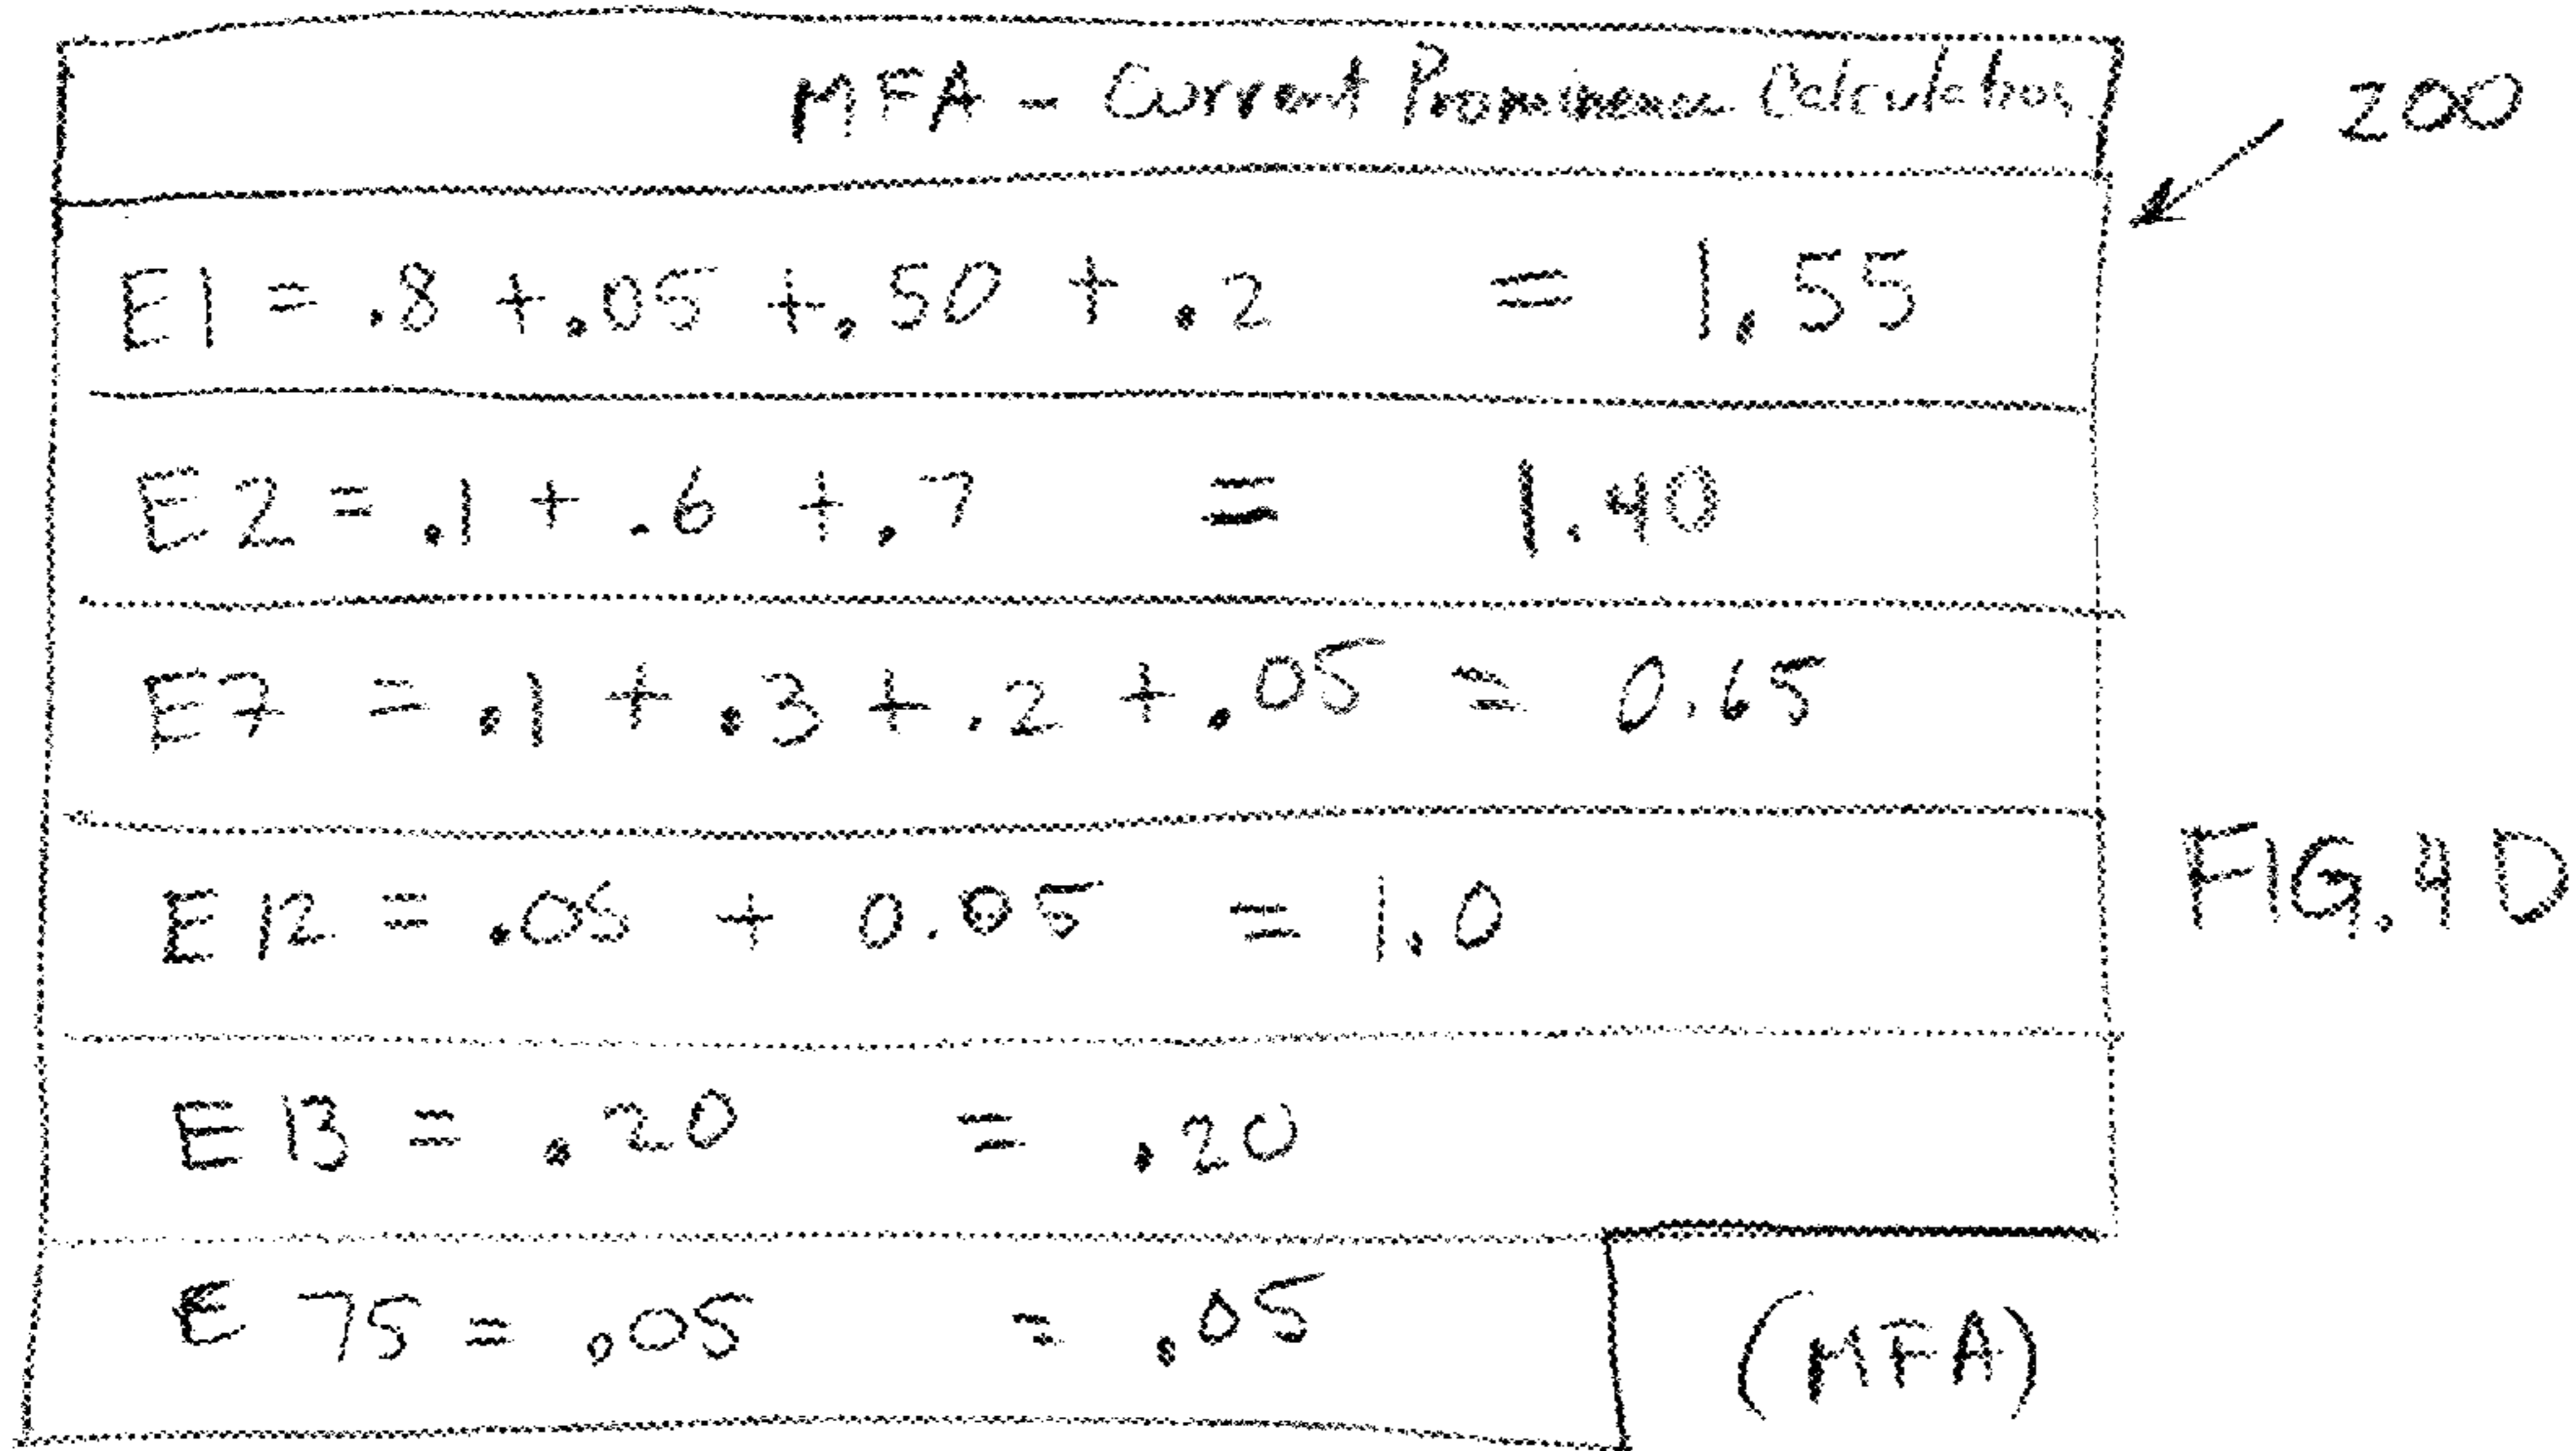 MFA - Current Prominence Calculation
200
E1 = .8 + .05 + .50 + .2 = 1.55
E2 = .1 + .6 + .7 = 1.40
E7 = .1 + .3 + .2 + .05 = 0.65
E12 = .05 + 0.05 = 1.0
FIG. 4D
E13 = .20 = .20
E75 = .05 = .05
(MFA)